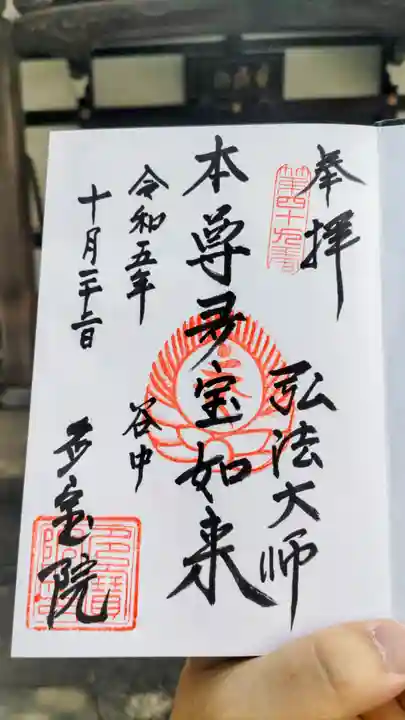 奉拝
第四十九番
弘法大師
本尊多宝如来
谷中
令和五年
十月二十二日
多宝院